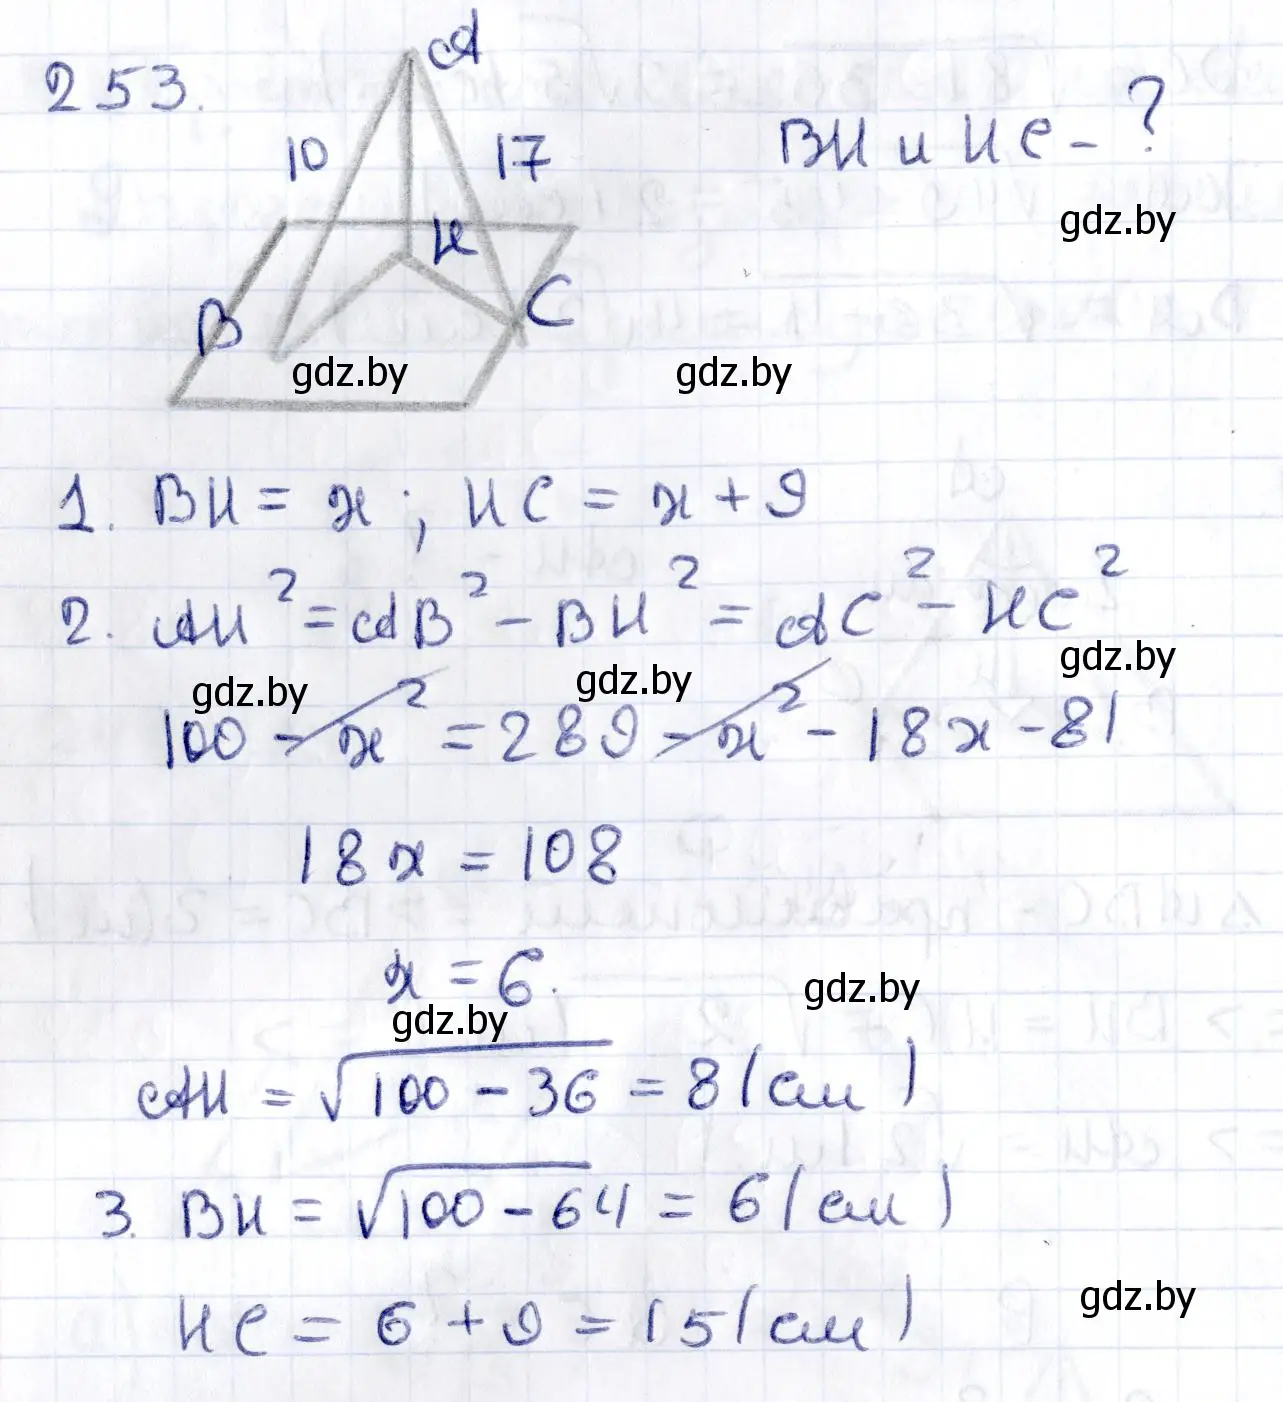 253.
A
10
17
H
B
C
BH и HC - ?
gdz.by
gdz.by
gdz.by
1. BH = x ; HC = x + 9
2. AH² = AB² - BH² = AC² - HC²
gdz.by
gdz.by
gdz.by
100 - x² = 289 - x² - 18x - 81
18x = 108
x = 6.
gdz.by
gdz.by
AH = √100 - 36 = 8 (см)
3. BH = √100 - 64 = 6 (см)
gdz.by
HC = 6 + 9 = 15 (см)